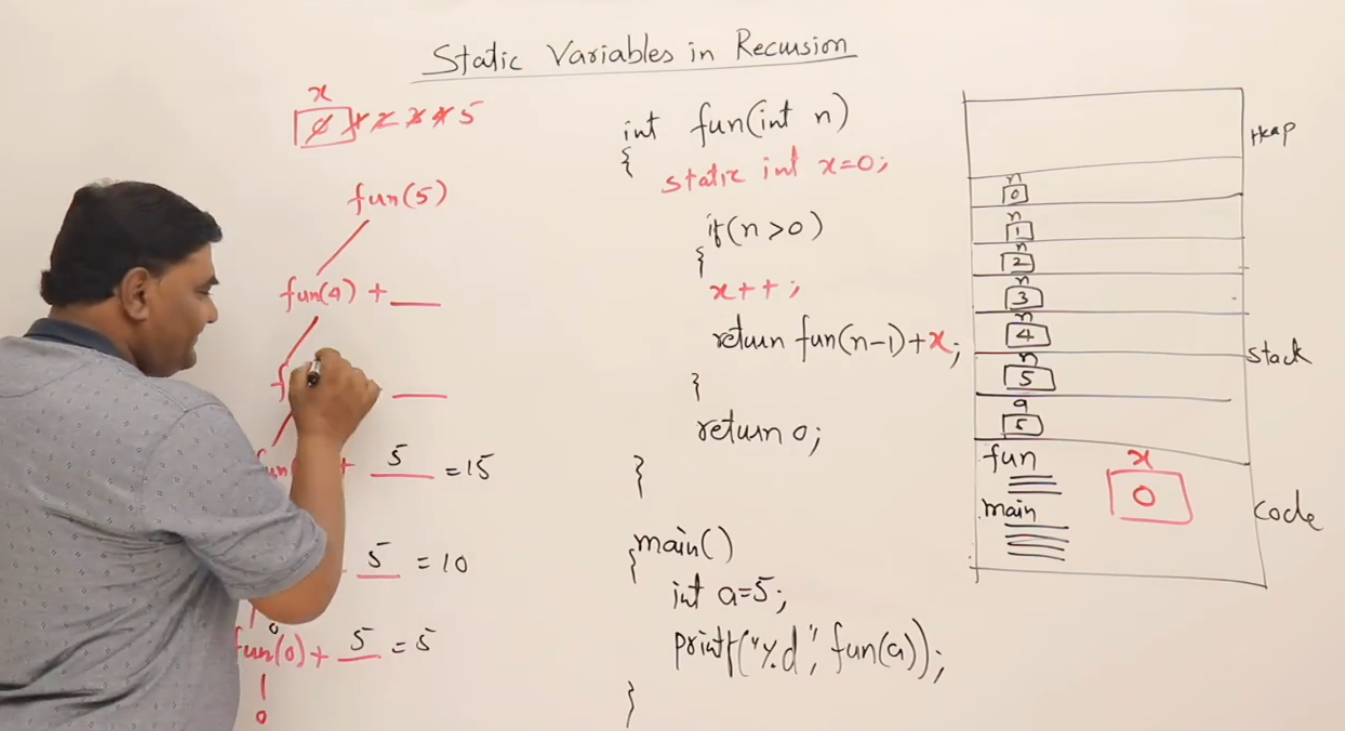 Static Variables in Recursion
x
0 1 2 3 4 5
fun(5)
fun(4) + ___
___
+ 5 = 15
5 = 10
0
fun(0) + 5 = 5
0
int fun(int n)
{
static int x=0;
if(n>0)
{
x++;
return fun(n-1)+x;
}
return 0;
}
main()
{
int a=5;
printf("%d", fun(a));
}
Heap
n
0
n
1
n
2
n
3
n
4
Stack
n
5
a
5
fun
x
0
main
code